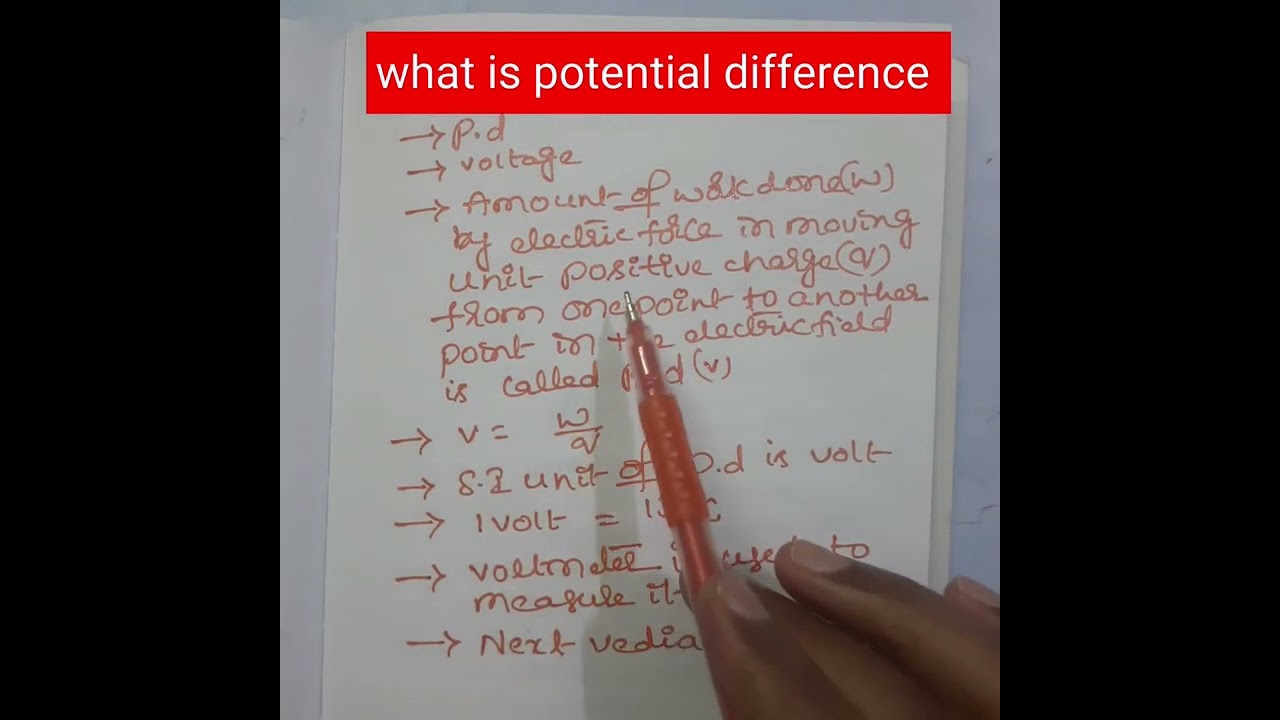 what is potential difference
→ P.d
→ voltage
→ Amount of work done (W)
by electric force in moving
unit positive charge (q)
from one point to another
point in the electric field
is called P.d (v)
→ v = W/q
→ S.I unit of P.d is volt
→ 1 volt = 1
→ voltmeter is used to
measure it
→ Next vedia